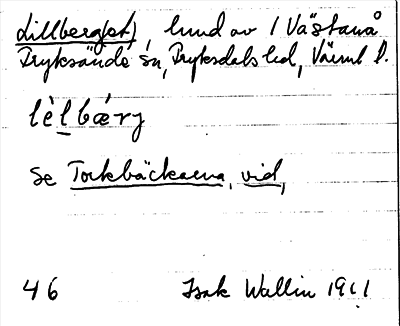 Lillberget), lund av 1 Västanå
Fryksände sn, Fryksdals hd, Värml l.
lèlbǽrj
Se Torkbäckarna, vid,
46 Isak Wallin 1911